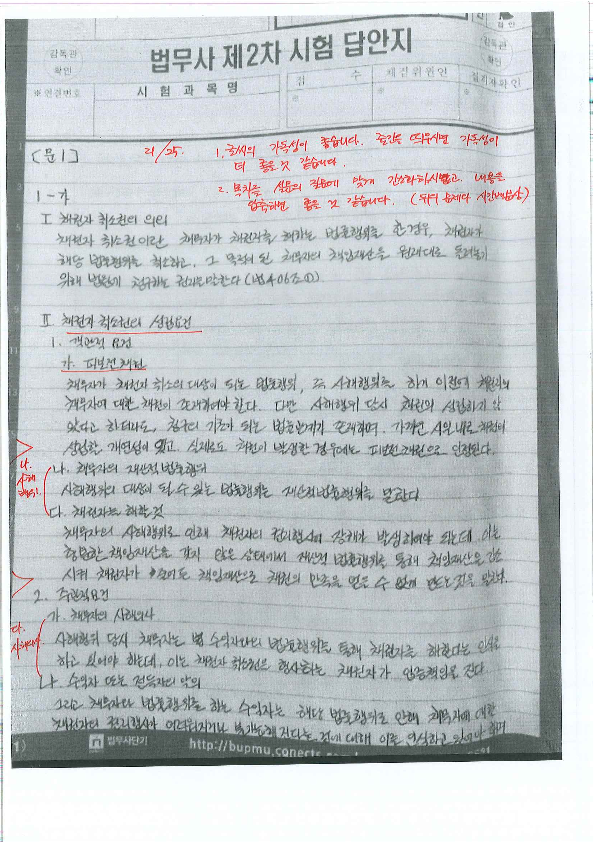 감독관
확인
법무사 제2차 시험 답안지
감독관
확인
※연련번호
시 험 과 목 명
점 수
채점위원인
집계자확인
※
※
[문 1] 21/25. 1. 글씨의 가독성이 좋습니다. 줄간을 띄우시면 가독성이
더 좋을 것 같습니다.
2. 목차를 실문의 질문에 맞게 간소화하시고 내용을
압축하면 좋을 것 같습니다.
1-가
Ⅰ 채권자 취소권의 의의
채권자 취소권이란 채무자가 채권자를 해하는 법률행위를 한 경우, 채권자가
해당 법률행위를 취소하고, 그 목적이 된 채무자의 책임재산을 원래대로 돌려놓기
위해 법원에 청구하는 권리를 말한다 (법406조①)
Ⅱ 채권자 취소권의 성립요건
1. 객관적 요건
가. 피보전채권
채무자가 채권자 취소의 대상이 되는 법률행위, 즉 사해행위를 하기 이전에 채권자의
채무자에 대한 채권이 존재하여야 한다. 다만 사해행위 당시 채권이 성립하지 않
았다고 하더라도, 채권의 기초가 되는 법률관계가 존재하며, 가까운 시일 내로 채권이
성립할 개연성이 있고, 실제로도 채권이 발생한 경우에는 피보전채권으로 인정된다.
나.
사해
행위
나. 채무자의 재산적 법률행위
사해행위의 대상이 될 수 있는 법률행위는 재산적 법률행위를 말한다.
다. 채권자를 해할 것
채무자의 사해행위로 인해 채권자의 권리행사에 장해가 발생하여야 되는데 이는
충분한 책임재산을 갖지 않은 상태에서 재산적 법률행위를 통해 책임재산을 감소
시켜 채권자가 책임재산으로 채권의 만족을 얻을 수 없게 만드는 것을 말한다.
2. 주관적 요건
다.
사해의사
가. 채무자의 사해의사
사해행위 당시 채무자는 수익자와의 법률행위를 통해 채권자를 해한다는 인식을
하고 있어야 하는데, 이는 채권자 취소권을 행사하는 채권자가 입증책임을 진다.
나. 수익자 또는 전득자의 악의
그리고 채무자와 법률행위를 하는 수익자는 해당 법률행위로 인해 채무자에 대한
채권자의 권리행사가 어려워지거나 불가능해진다는 것에 대해 이를 인식하고 있어야 하며
1)
법무사단기
http://bupmu.conects.com